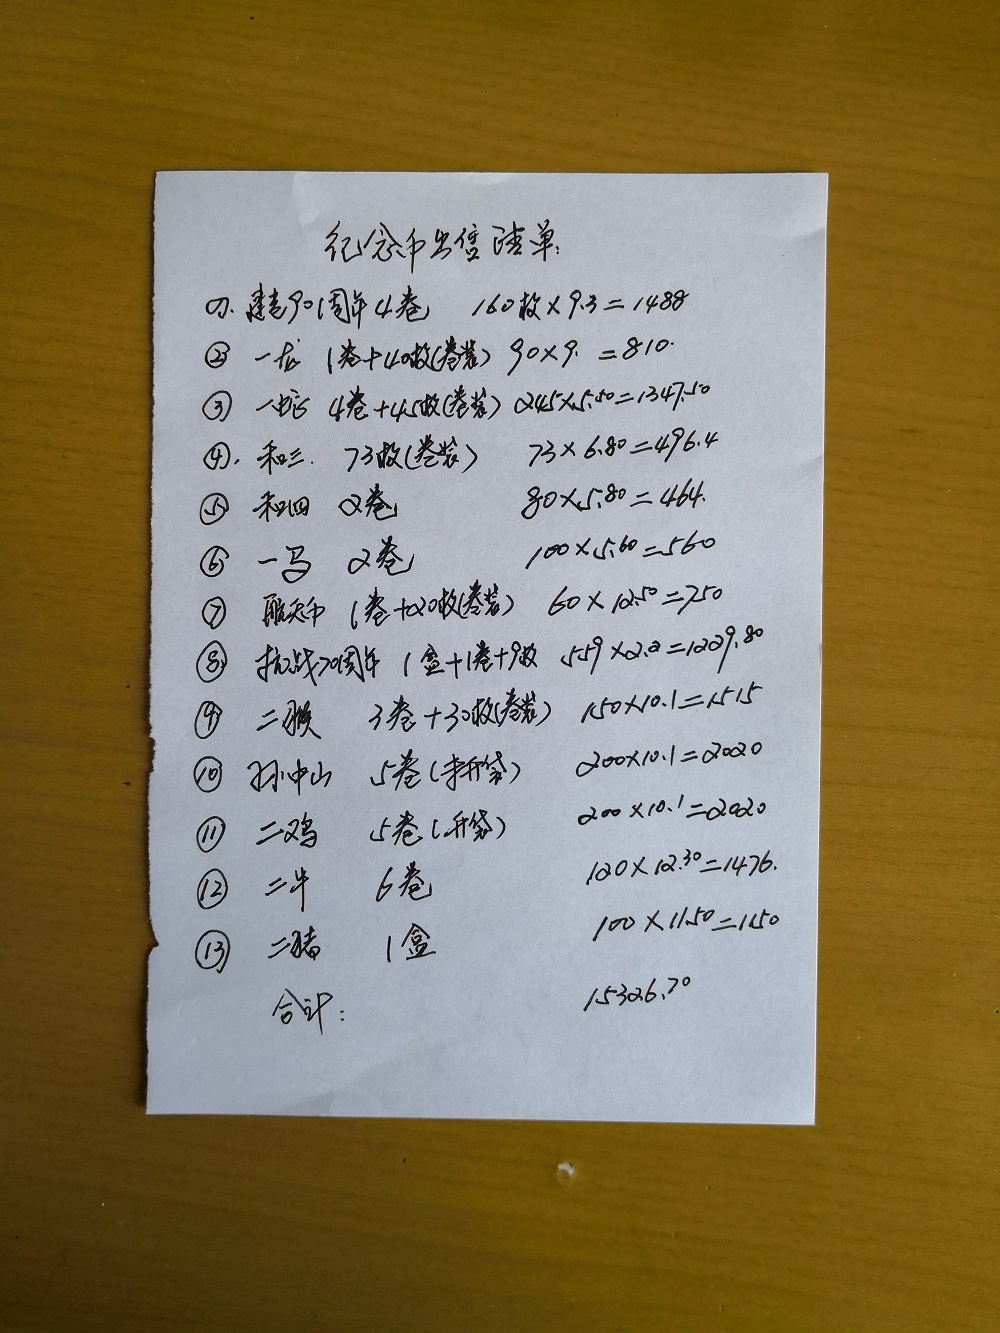 纪念币出售清单:
①. 建党90周年4卷 160枚×9.3=1488
② 一龙 1卷+40枚(卷装) 90×9. =810.
③ 一蛇 4卷+45枚(卷装) 245×5.50=1347.50
④. 和三. 73枚(卷装) 73×6.80=496.4
⑤ 和四 2卷 80×5.80=464.
⑥ 一马 2卷 100×5.60=560
⑦ 航天币 1卷+20枚(卷装) 60×12.50=750
⑧ 抗战70周年 1盒+1卷+9枚 559×2.2=1229.80
⑨ 二猴 3卷+30枚(卷装) 150×10.1=1515
⑩ 孙中山 5卷(未开袋) 200×10.1=2020
⑪ 二鸡 5卷(开袋) 200×10.1=2020
⑫ 二牛 6卷 120×12.30=1476.
⑬ 二猪 1盒 100×11.50=1150
合计: 15326.70